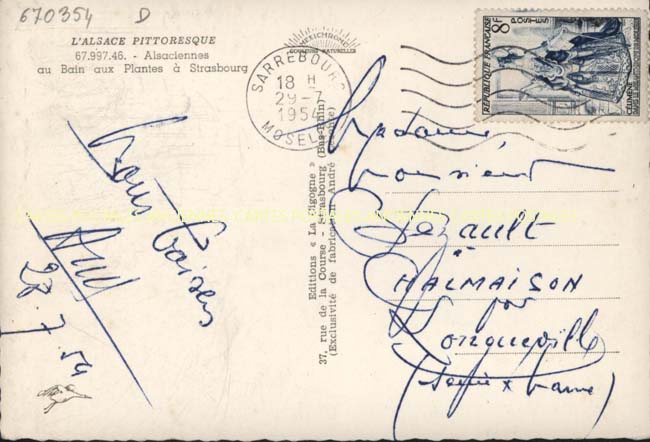 670354 D
L'ALSACE PITTORESQUE
67.997.46. - Alsaciennes
au Bain aux Plantes à Strasbourg
MEXICHROME
COULEURS NATURELLES
SARREBOURG
18 H
29-7
1954
MOSELLE
8F
POSTES
REPUBLIQUE FRANÇAISE
Bons baisers
28.7.54
Editions « La Cigogne »
37, rue de la Course - Strasbourg (Bas-Rhin)
(Exclusivité de fabrication André
Madame
Monsieur
à
CHALMAISON
par
Longueville
(Seine x Marne)